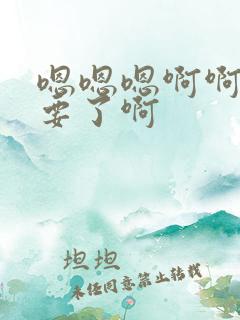 嗯嗯嗯啊啊
要了啊
坦坦
未经同意禁止转载